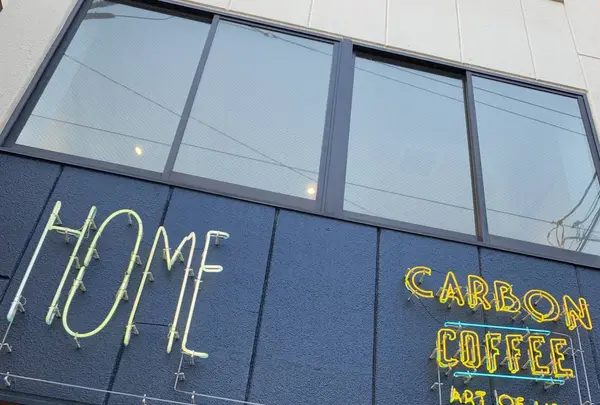 HOME
CARBON
COFFEE
ART OF